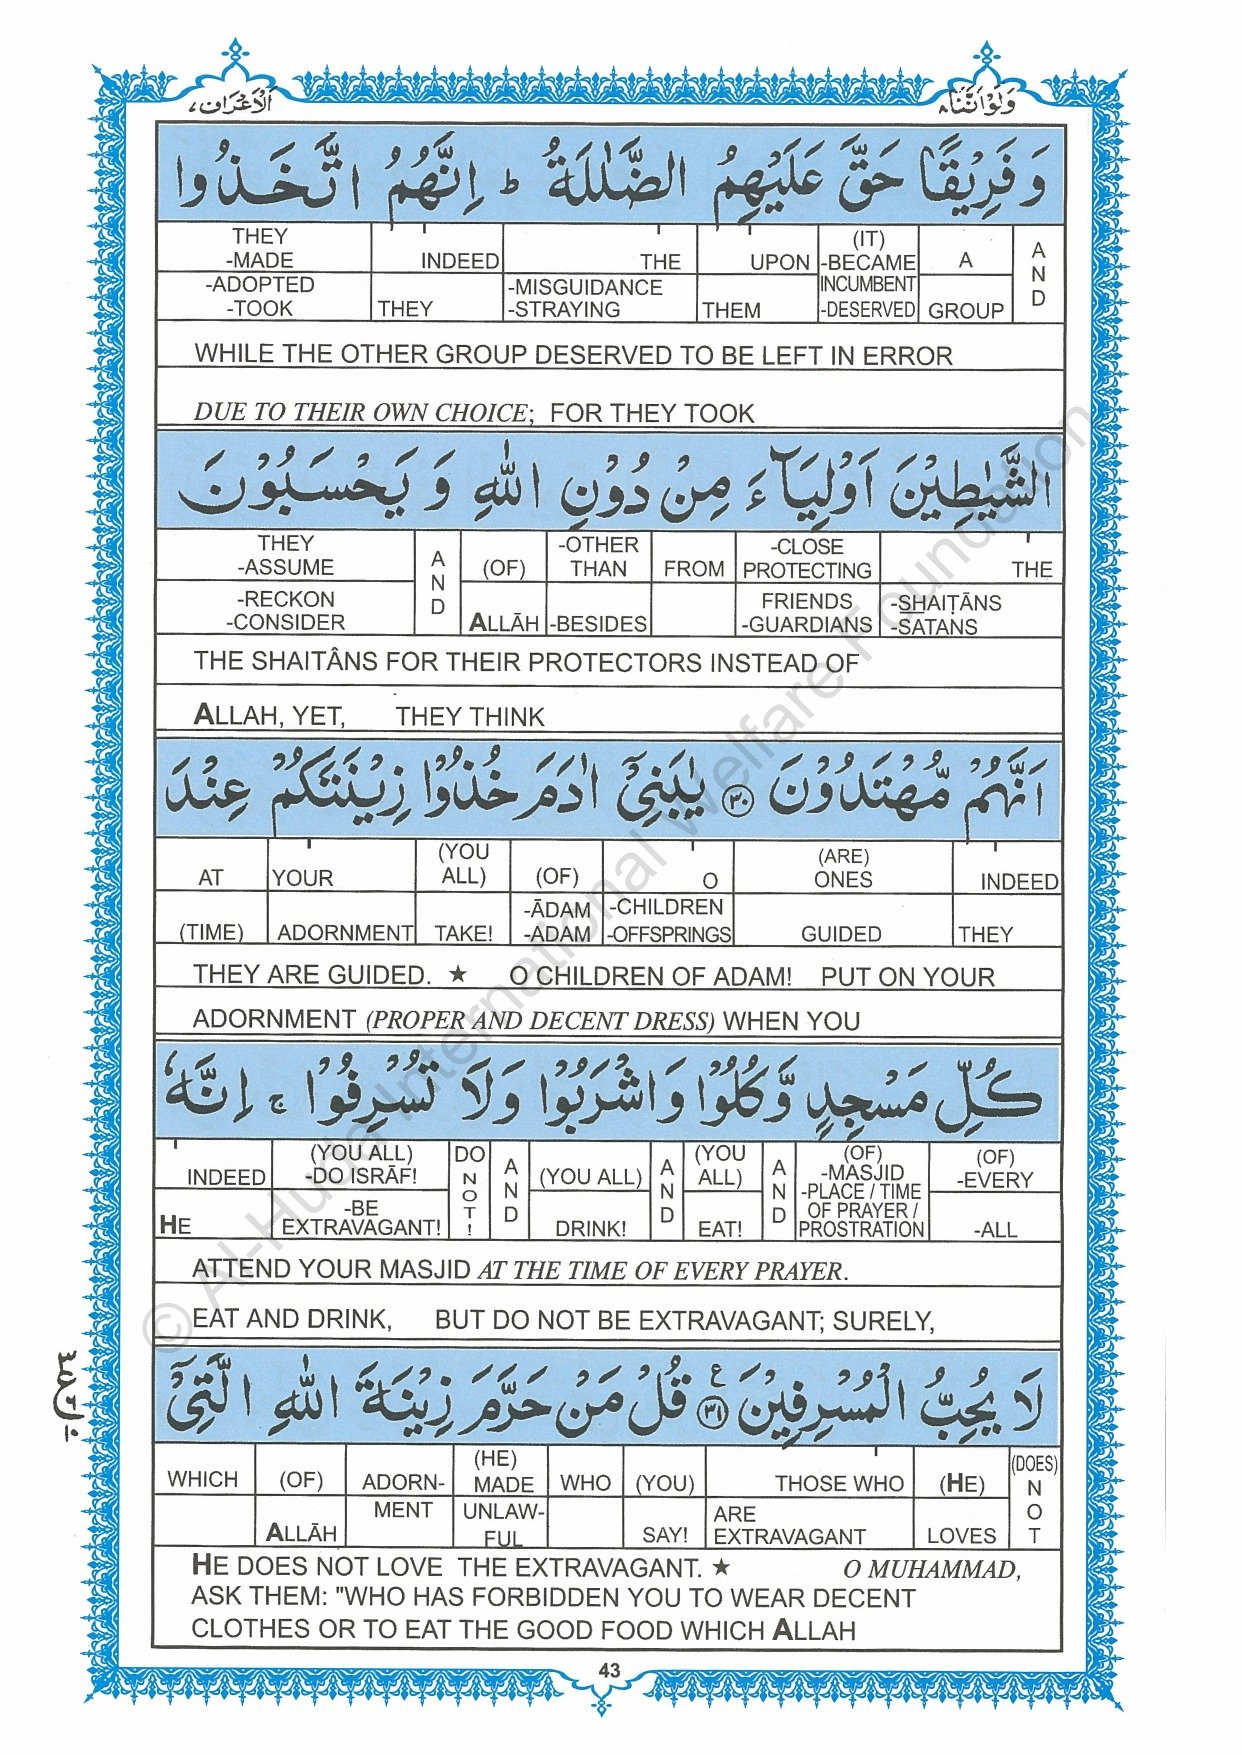 وَلَوْاَنَّنَا ۸
اَلْاَعْرَاف ۷
وَ فَرِيْقًا حَقَّ عَلَيْهِمُ الضَّلٰلَةُ ؕ اِنَّهُمُ اتَّخَذُوا
THEY -MADE | INDEED | THE | UPON | (IT) -BECAME INCUMBENT -DESERVED | A | AND
-ADOPTED -TOOK | THEY | -MISGUIDANCE -STRAYING | THEM | GROUP
WHILE THE OTHER GROUP DESERVED TO BE LEFT IN ERROR
DUE TO THEIR OWN CHOICE; FOR THEY TOOK
الشَّيٰطِيْنَ اَوْلِيَآءَ مِنْ دُوْنِ اللّٰهِ وَ يَحْسَبُوْنَ
THEY -ASSUME | AND | (OF) | -OTHER THAN | FROM | -CLOSE PROTECTING | THE
-RECKON -CONSIDER | ALLĀH | -BESIDES | FRIENDS -GUARDIANS | -SHAIṬĀNS -SATANS
THE SHAITÂNS FOR THEIR PROTECTORS INSTEAD OF
ALLAH, YET, THEY THINK
اَنَّهُمْ مُّهْتَدُوْنَ ۳۰ يٰبَنِيْۤ اٰدَمَ خُذُوْا زِيْنَتَكُمْ عِنْدَ
AT | YOUR | (YOU ALL) | (OF) | O | (ARE) ONES | INDEED
(TIME) | ADORNMENT | TAKE! | -ĀDAM -ADAM | -CHILDREN -OFFSPRINGS | GUIDED | THEY
THEY ARE GUIDED. ★ O CHILDREN OF ADAM! PUT ON YOUR
ADORNMENT (PROPER AND DECENT DRESS) WHEN YOU
كُلِّ مَسْجِدٍ وَّ كُلُوْا وَ اشْرَبُوْا وَ لَا تُسْرِفُوْا ۚ اِنَّهٗ
INDEED | (YOU ALL) -DO ISRĀF! | DO NOT! | AND | (YOU ALL) | AND | (YOU ALL) | AND | (OF) -MASJID -PLACE / TIME OF PRAYER / PROSTRATION | (OF) -EVERY
HE | -BE EXTRAVAGANT! | DRINK! | EAT! | -ALL
ATTEND YOUR MASJID AT THE TIME OF EVERY PRAYER.
EAT AND DRINK, BUT DO NOT BE EXTRAVAGANT; SURELY,
لَا يُحِبُّ الْمُسْرِفِيْنَ ۳۱ ع قُلْ مَنْ حَرَّمَ زِيْنَةَ اللّٰهِ الَّتِيْۤ
WHICH | (OF) | ADORN- | (HE) MADE | WHO | (YOU) | THOSE WHO | (HE) | (DOES) NOT
ALLĀH | MENT | UNLAW-FUL | SAY! | ARE EXTRAVAGANT | LOVES
HE DOES NOT LOVE THE EXTRAVAGANT. ★ O MUHAMMAD,
ASK THEM: "WHO HAS FORBIDDEN YOU TO WEAR DECENT
CLOTHES OR TO EAT THE GOOD FOOD WHICH ALLAH
43
© Al-Huda International Welfare Foundation